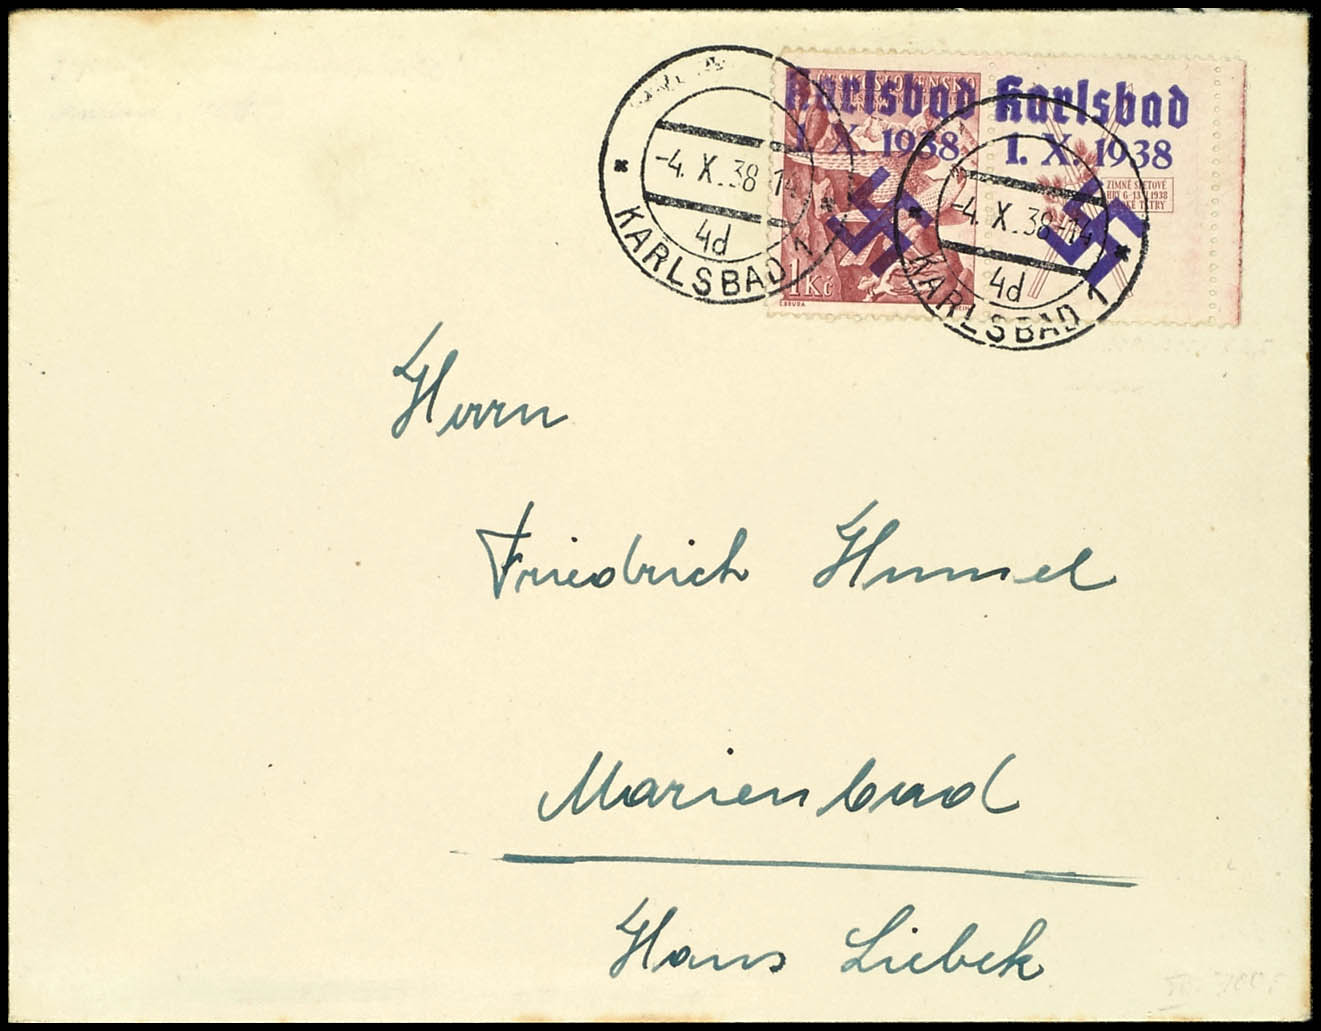 Karlsbad
1. X. 1938
Karlsbad
1. X. 1938
1 Kč
ZIMNÍ SVĚTOVÉ
HRY 6-13 II 1938
TATRY
-4. X. 38-14
4d
KARLSBAD 1
-4. X. 38-14
4d
KARLSBAD 1
Herrn
Friedrich Hummel
Marienbad
Haus Liebek